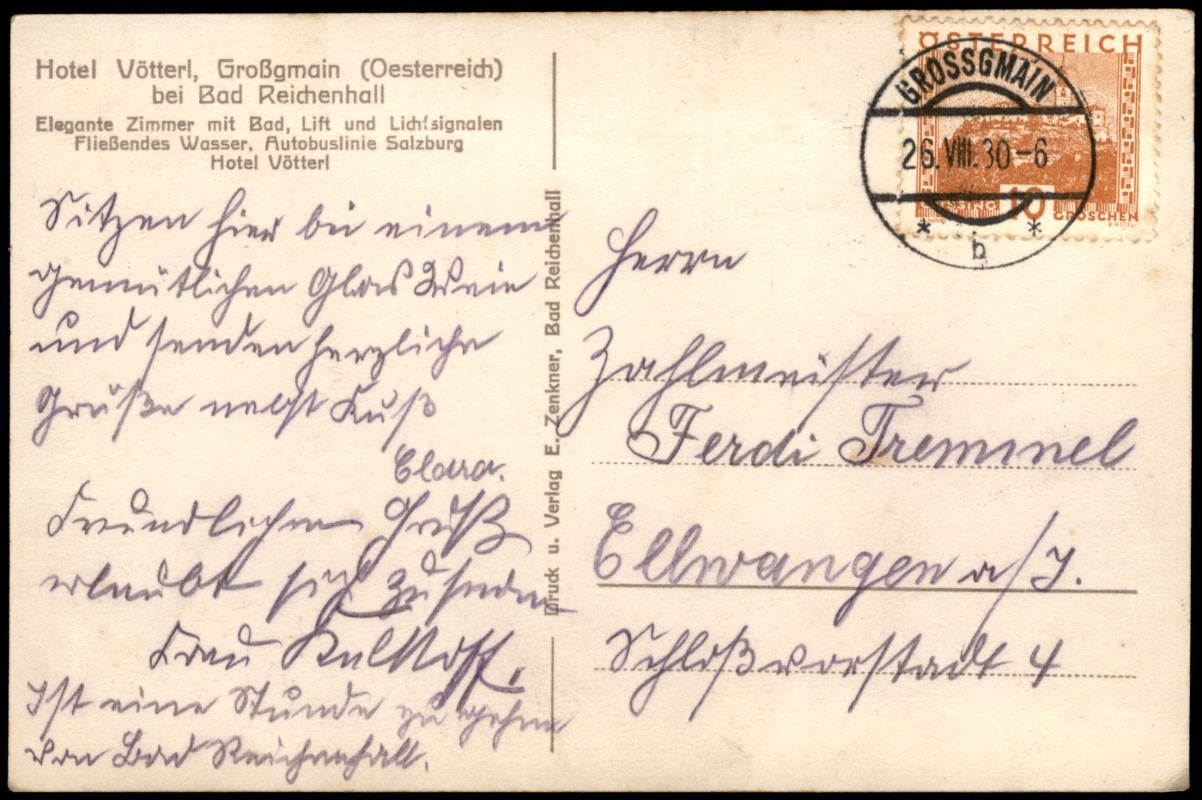 Hotel Vötterl, Großgmain (Oesterreich)
bei Bad Reichenhall
Elegante Zimmer mit Bad, Lift und Lichtsignalen
Fließendes Wasser, Autobuslinie Salzburg
Hotel Vötterl
Sitzen hier bei einem
gemütlichen Glas Wein
und senden herzliche
Grüße nebst Kuß
Clara.
Freundlichen Gruß
erlaubt sich zu senden
Frau
Ist eine Stunde zu gehen
von Bad Reichenhall.
Druck u. Verlag E. Zenkner, Bad Reichenhall
ÖSTERREICH
10
GROSCHEN
GROSSGMAIN
26.VIII.30-6
* b *
Herrn
Zahlmeister
Ferdi Tremmel
Ellwangen a/J.
Schloßvorstadt 4